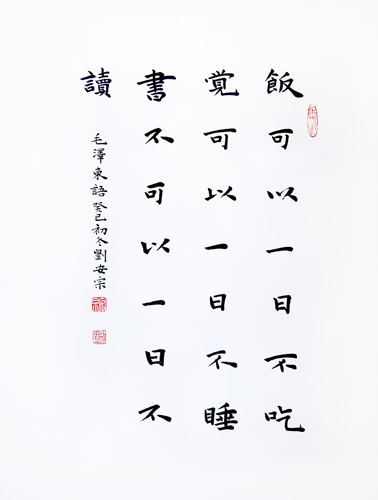 飯可以一日不吃
覚可以一日不睡
書不可以一日不
讀
毛澤東語癸巳初冬劉安宗